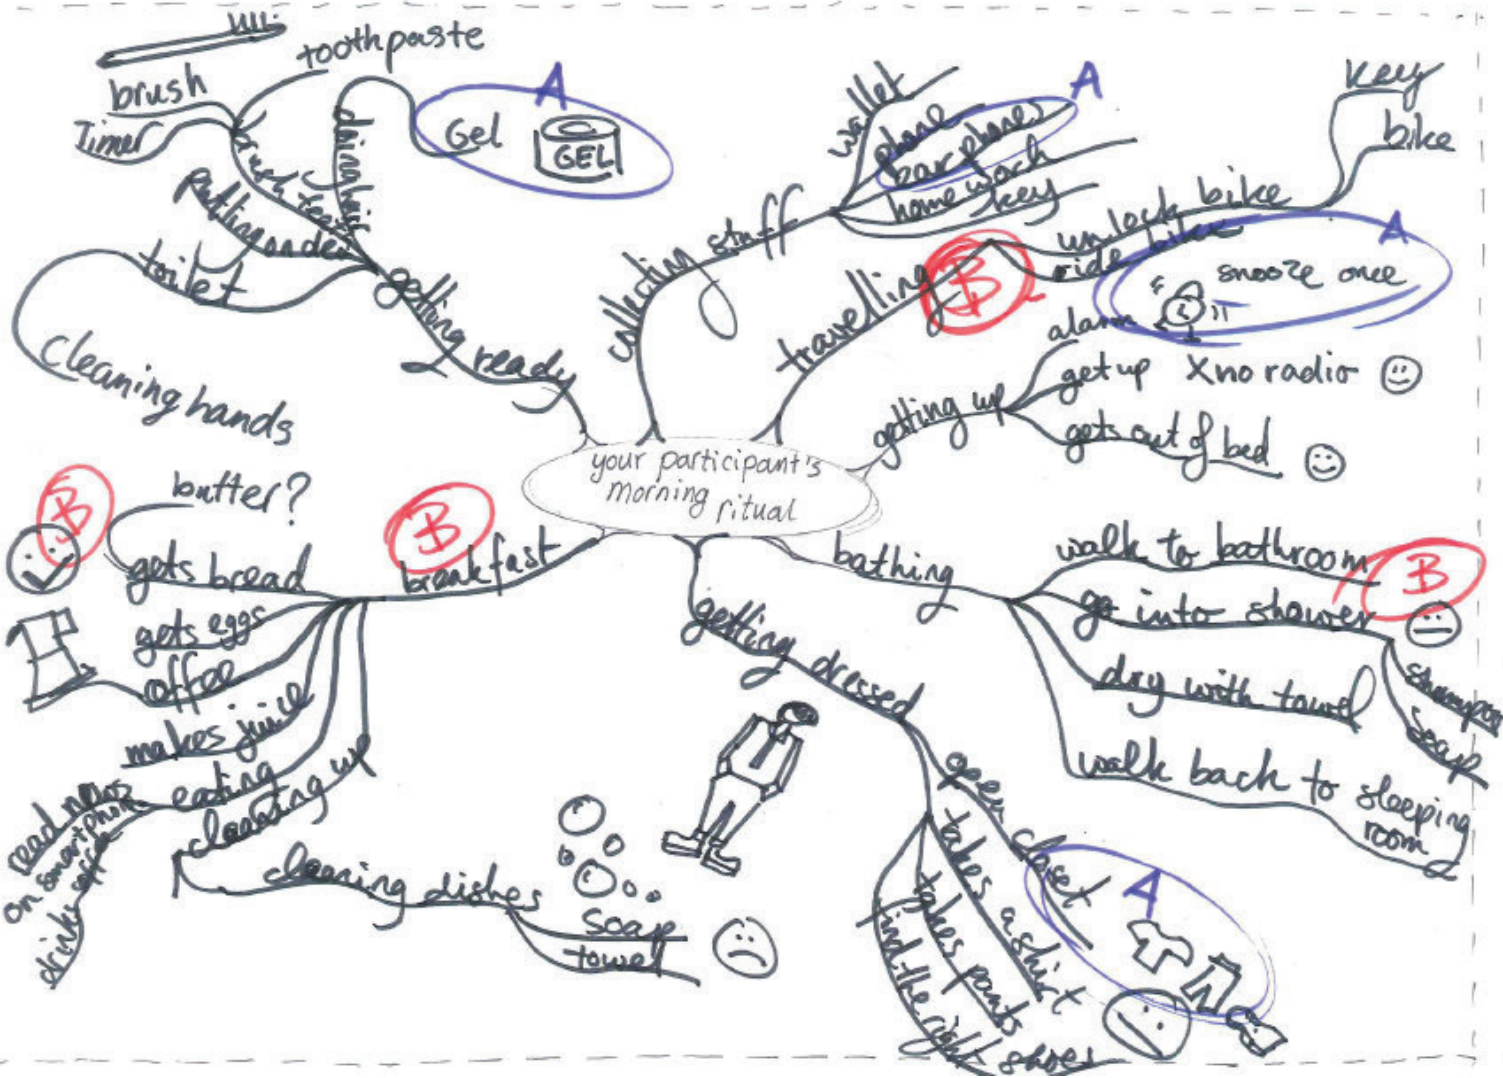 your participant's
morning
ritual
getting ready
brush teeth
brush
Timer
toothpaste
doing hair
Gel
GEL
A
putting on deo
toilet
cleaning hands
collecting stuff
wallet
phone
earphones
home work
key
A
travelling
B
unlock bike
key
bike
ride bike
getting up
alarm
snooze once
A
get up
X no radio
gets out of bed
bathing
walk to bathroom
B
go into shower
shampoo
soap
dry with towel
walk back to sleeping
room
getting dressed
open closet
A
takes a shirt
takes pants
find the right shoes
breakfast
B
gets bread
butter?
B
gets eggs
coffee
makes juice
eating
read news
on smartphone
drinks coffee
cleaning up
cleaning dishes
soap
towel